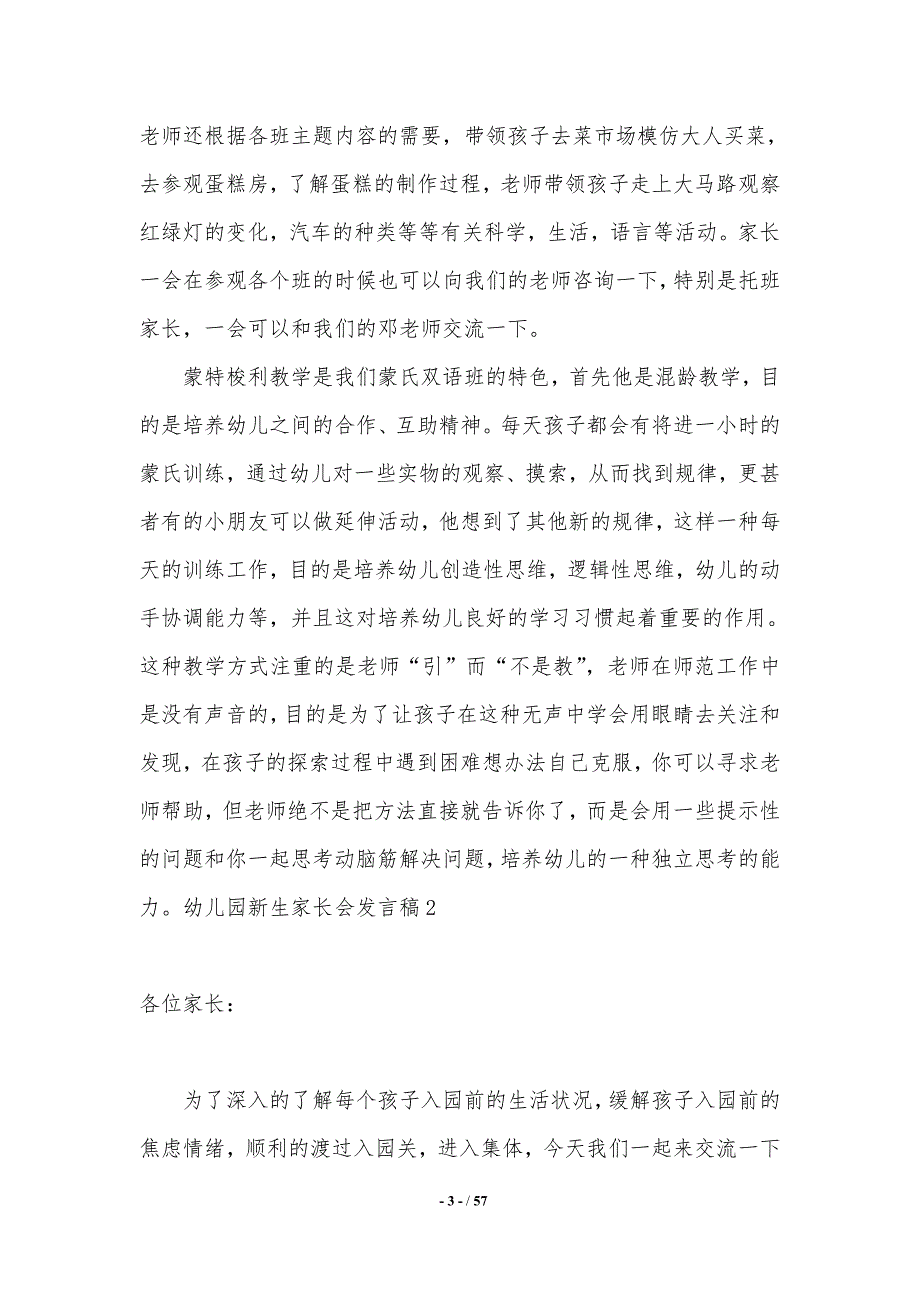 老师还根据各班主题内容的需要，带领孩子去菜市场模仿大人买菜，
去参观蛋糕房，了解蛋糕的制作过程，老师带领孩子走上大马路观察
红绿灯的变化，汽车的种类等等有关科学，生活，语言等活动。家长
一会在参观各个班的时候也可以向我们的老师咨询一下，特别是托班
家长，一会可以和我们的邓老师交流一下。
蒙特梭利教学是我们蒙氏双语班的特色，首先他是混龄教学，目
的是培养幼儿之间的合作、互助精神。每天孩子都会有将进一小时的
蒙氏训练，通过幼儿对一些实物的观察、摸索，从而找到规律，更甚
者有的小朋友可以做延伸活动，他想到了其他新的规律，这样一种每
天的训练工作，目的是培养幼儿创造性思维，逻辑性思维，幼儿的动
手协调能力等，并且这对培养幼儿良好的学习习惯起着重要的作用。
这种教学方式注重的是老师“引”而“不是教”，老师在师范工作中
是没有声音的，目的是为了让孩子在这种无声中学会用眼睛去关注和
发现，在孩子的探索过程中遇到困难想办法自己克服，你可以寻求老
师帮助，但老师绝不是把方法直接就告诉你了，而是会用一些提示性
的问题和你一起思考动脑筋解决问题，培养幼儿的一种独立思考的能
力。幼儿园新生家长会发言稿2
各位家长：
为了深入的了解每个孩子入园前的生活状况，缓解孩子入园前的
焦虑情绪，顺利的渡过入园关，进入集体，今天我们一起来交流一下
- 3 - / 57